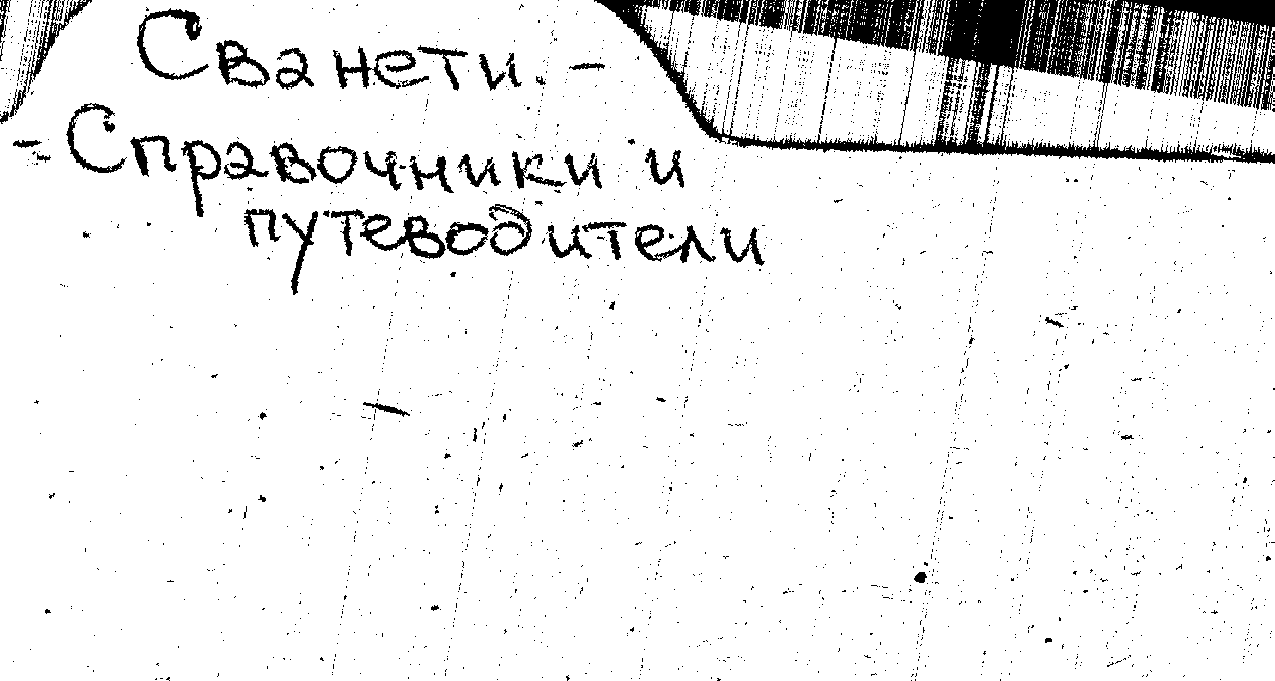 Сванети. -
- Справочники и
путеводители